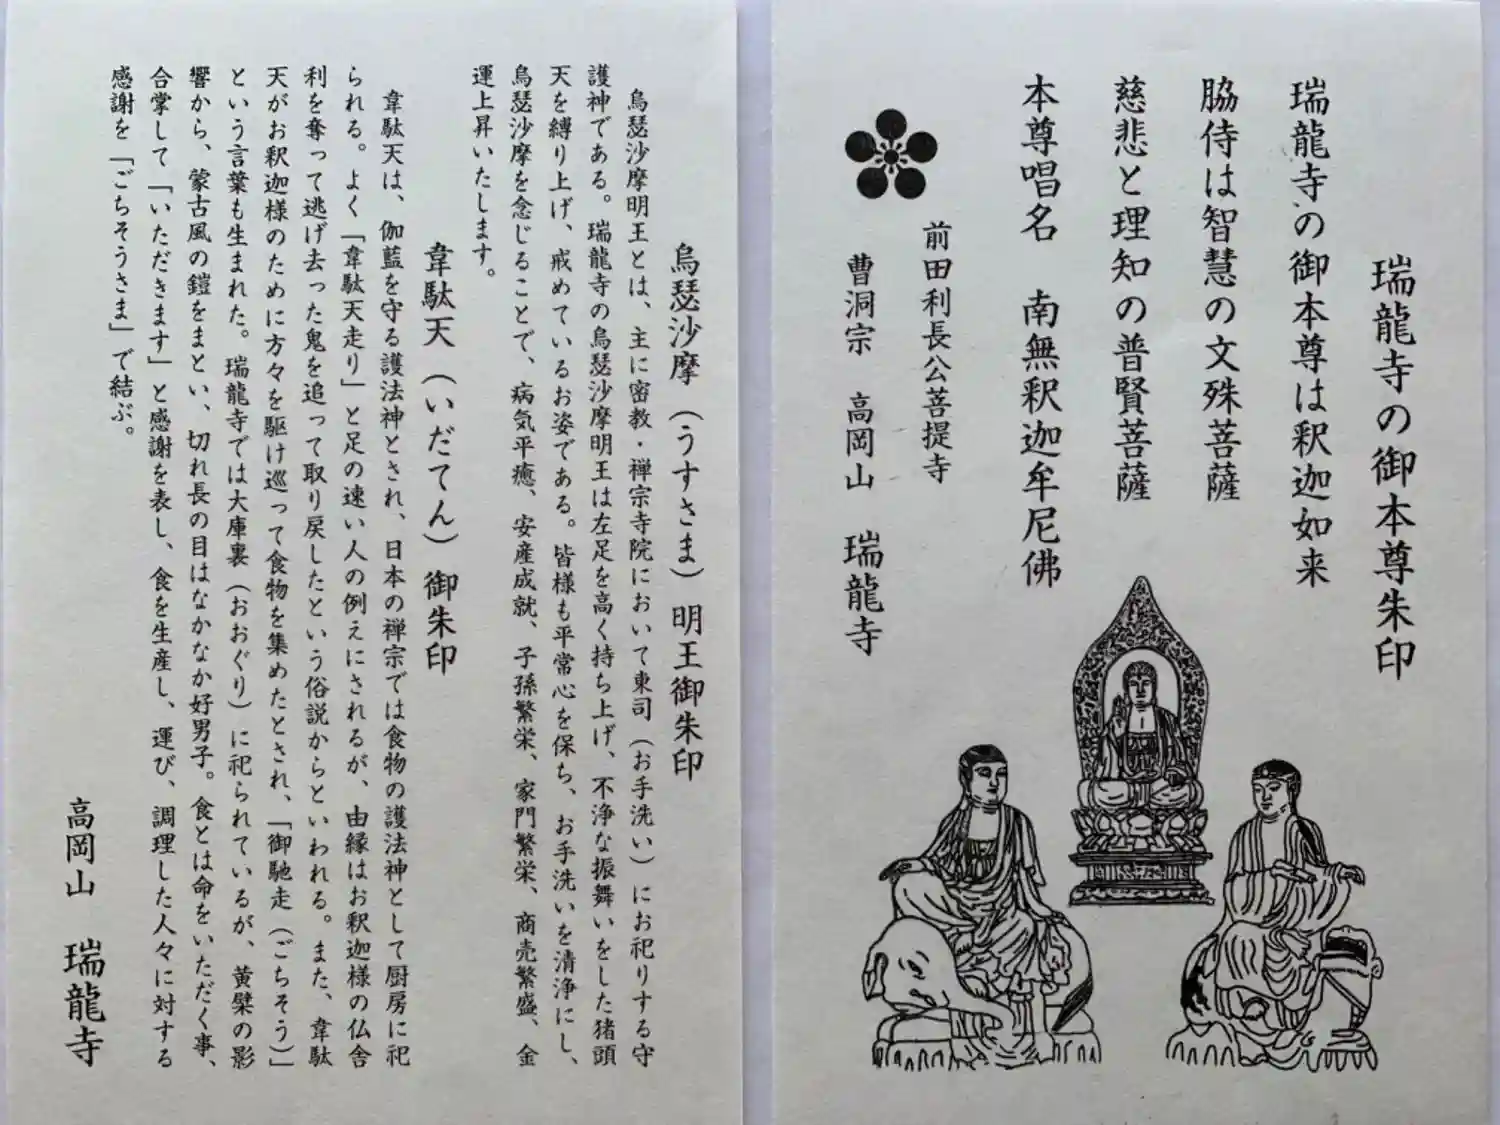 瑞龍寺の御本尊朱印
瑞龍寺の御本尊は釈迦如来
脇侍は智慧の文殊菩薩
慈悲と理知の普賢菩薩
本尊唱名 南無釈迦牟尼佛
前田利長公菩提寺
曹洞宗 高岡山 瑞龍寺
烏瑟沙摩（うすさま）明王御朱印
烏瑟沙摩明王とは、主に密教・禅宗寺院において東司（お手洗い）にお祀りする守
護神である。瑞龍寺の烏瑟沙摩明王は左足を高く持ち上げ、不浄な振舞いをした猪頭
天を縛り上げ、戒めているお姿である。皆様も平常心を保ち、お手洗いを清浄にし、
烏瑟沙摩を念じることで、病気平癒、安産成就、子孫繁栄、家門繁栄、商売繁盛、金
運上昇いたします。
韋駄天（いだてん）御朱印
韋駄天は、伽藍を守る護法神とされ、日本の禅宗では食物の護法神として厨房に祀
られる。よく「韋駄天走り」と足の速い人の例えにされるが、由縁はお釈迦様の仏舎
利を奪って逃げ去った鬼を追って取り戻したという俗説からといわれる。また、韋駄
天がお釈迦様のために方々を駆け巡って食物を集めたとされ、「御馳走（ごちそう）」
という言葉も生まれた。瑞龍寺では大庫裏（おおぐり）に祀られているが、黄檗の影
響から、蒙古風の鎧をまとい、切れ長の目はなかなか好男子。食とは命をいただく事、
合掌して「いただきます」と感謝を表し、食を生産し、運び、調理した人々に対する
感謝を「ごちそうさま」で結ぶ。
高岡山 瑞龍寺